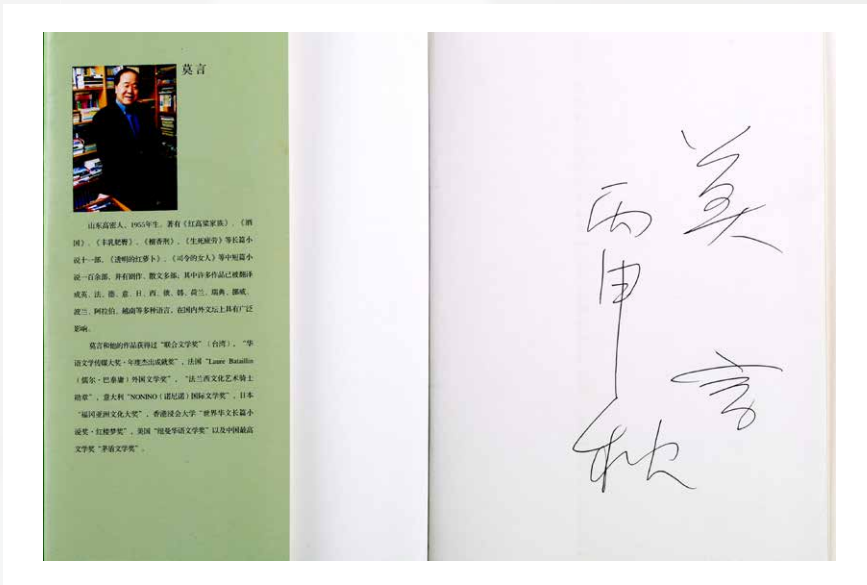 莫言
山东高密人,1955年生。著有《红高粱家族》、《酒
国》、《丰乳肥臀》、《檀香刑》、《生死疲劳》等长篇小
说十一部,《透明的红萝卜》、《司令的女人》等中短篇小
说一百余部,并有剧作、散文多部;其中许多作品已被翻译
成英、法、德、意、日、西、俄、韩、荷兰、瑞典、挪威、
波兰、阿拉伯、越南等多种语言,在国内外文坛上具有广泛
影响。
莫言和他的作品获得过“联合文学奖”(台湾),“华
语文学传媒大奖·年度杰出成就奖”,法国“Laure Bataillin
(儒尔·巴泰庸)外国文学奖”,“法兰西文化艺术骑士
勋章”,意大利“NONINO(诺尼诺)国际文学奖”,日本
“福冈亚洲文化大奖”,香港浸会大学“世界华文长篇小
说奖·红楼梦奖”,美国“纽曼华语文学奖”以及中国最高
文学奖“茅盾文学奖”。
莫言
丙申秋